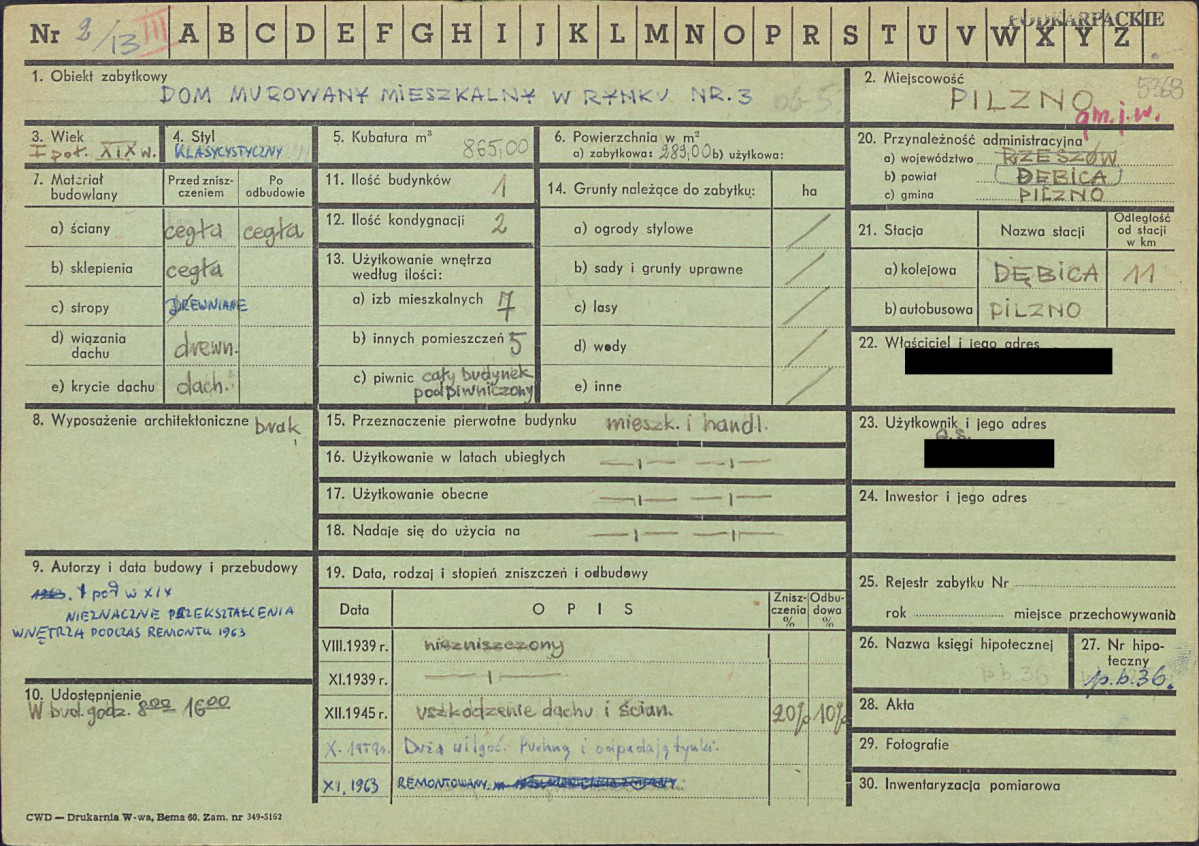 PODKARPACKIE
Nr 2/13 III A B C D E F G H I J K L M N O P R S T U V W X Y Z
1. Obiekt zabytkowy
DOM MUROWANY MIESZKALNY W RYNKU NR. 3
2. Miejscowość 5368
PILZNO
gm. j.w.
3. Wiek
I poł. XIX w.
4. Styl
KLASYCYSTYCZNY
5. Kubatura m³
865,00
6. Powierzchnia w m²
a) zabytkowa: 289,00 b) użytkowa:
20. Przynależność administracyjna
a) województwo RZESZÓW
b) powiat DĘBICA
c) gmina PILZNO
7. Materiał budowlany
Przed zniszczeniem
Po odbudowie
a) ściany cegła cegła
b) sklepienia cegła
c) stropy DREWNIANE
d) wiązania dachu drewn.
e) krycie dachu dach.
11. Ilość budynków 1
12. Ilość kondygnacji 2
13. Użytkowanie wnętrza według ilości:
a) izb mieszkalnych 7
b) innych pomieszczeń 5
c) piwnic cały budynek
podpiwniczony
14. Grunty należące do zabytku: ha
a) ogrody stylowe /
b) sady i grunty uprawne /
c) lasy /
d) wody /
e) inne /
21. Stacja
Nazwa stacji
Odległość od stacji w km
a) kolejowa DĘBICA 11
b) autobusowa PILZNO
22. Właściciel i jego adres
8. Wyposażenie architektoniczne brak
15. Przeznaczenie pierwotne budynku mieszk. i handl.
16. Użytkowanie w latach ubiegłych — 1 — — 1 —
17. Użytkowanie obecne — 1 — — 1 —
18. Nadaje się do użycia na — 1 — — 1 —
23. Użytkownik i jego adres
24. Inwestor i jego adres
9. Autorzy i data budowy i przebudowy
1963. 1 poł w XIX
NIEZNACZNE PRZEKSZTAŁCENIA
WNĘTRZA PODCZAS REMONTU 1963
10. Udostępnienie
W bud. godz. 8⁰⁰ 16⁰⁰
19. Data, rodzaj i stopień zniszczeń i odbudowy
Data
OPIS
Zniszczenia %
Odbudowa %
VIII.1939 r. niezniszczony
XI.1939 r. — 1 —
XII.1945 r. uszkodzenie dachu i ścian. 20% 10%
X. 1959r. Duża wilgoć. Puchną i odpadają tynki.
XI, 1963 REMONTOWANY
25. Rejestr zabytku Nr
rok miejsce przechowywania
26. Nazwa księgi hipotecznej
p.b.36
27. Nr hipoteczny
p.b.36.
28. Akta
29. Fotografie
30. Inwentaryzacja pomiarowa
CWD — Drukarnia W-wa, Bema 60. Zam. nr 349-5162